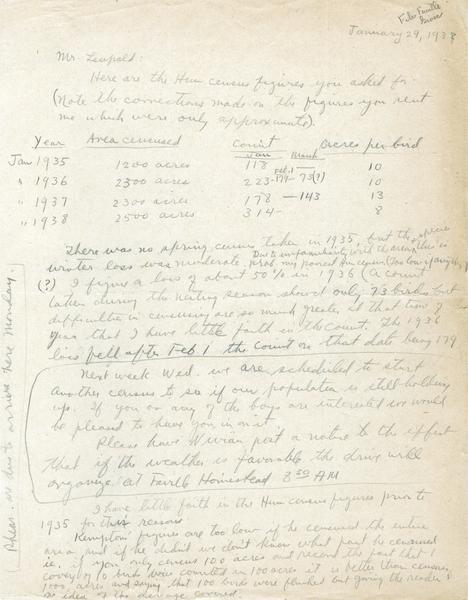 File Faville Grove
January 29, 1938
Mr. Leopold:
Here are the Hun census figures you asked for
(Note the corrections made on the figures you sent
me which were only approximate).
Year Area censused Count Acres per bird
Jan March
Jan 1935 1200 acres 118 — 10
" 1936 2300 acres 223 - Feb. 1 179 - 73(?) 10
" 1937 2300 acres 178 — 143 13
" 1938 2500 acres 314 - 8
There was no spring census taken in 1935, but the
winter loss was moderate.
(?) I figure a loss of about 50% in 1936 (A count
taken during the nesting season showed only 73 birds but
difficulties in censusing are so much greater at that time of
year that I have little faith in the count. The 1936
loss fell after Feb 1 the count on that date being 179
Next week Wed. we are scheduled to start
another census to see if our population is still holding
up. If you or any of the boys are interested we would
be pleased to have you in on it.
Please have Vivian post a notice to the effect
that if the weather is favorable the drive will
organize at Faville Homestead 8:30 AM
I have little faith in the Hun census figures prior to
1935 for this reason
Kempton' figures are too low if he censused the entire
area and if he didn't we don't know what part he censused
ie. if you only census 100 acres and record the fact that 1
covey of 10 birds were counted on 100 acres it is better than censusing
1000 acres and saying that 100 birds were flushed but giving the reader
no idea of the acreage covered.
Pheas. are due to arrive here Monday.